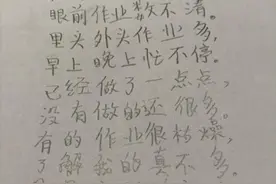 眼前作业数不清。
里头外头作业多,
早上晚上忙不停。
已经做了一点点,
没有做的还很多。
有的作业很枯燥,
了解我的真不多。